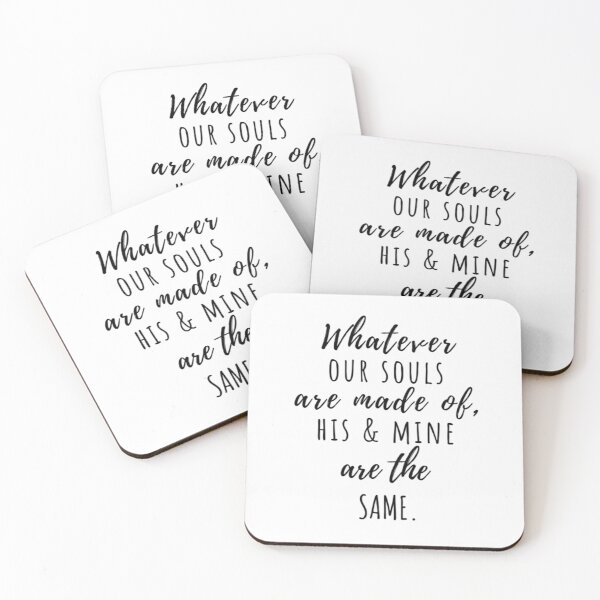 Whatever
OUR SOULS
are made of
Whatever
OUR SOULS
are made of,
HIS & MINE
are the
Whatever
OUR SOULS
are made of,
HIS & MINE
are the
SAME
Whatever
OUR SOULS
are made of,
HIS & MINE
are the
SAME.